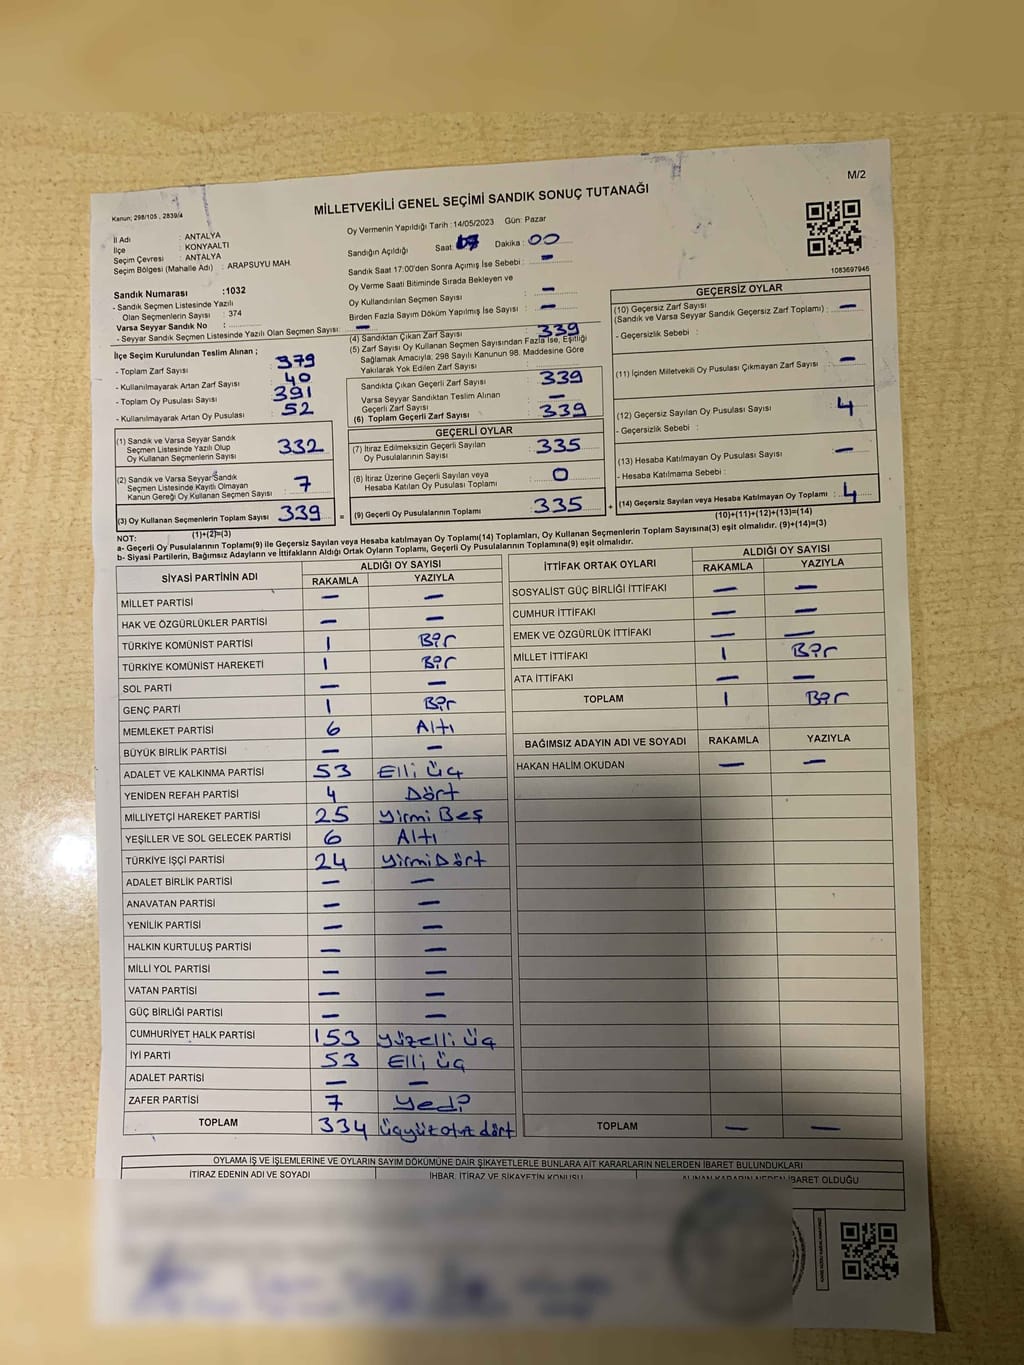 M/2
MİLLETVEKİLİ GENEL SEÇİMİ SANDIK SONUÇ TUTANAĞI
Kanun; 298/105 , 2839/4
İl Adı : ANTALYA
İlçe : KONYAALTI
Seçim Çevresi : ANTALYA
Seçim Bölgesi (Mahalle Adı) : ARAPSUYU MAH.
Sandık Numarası :1032
- Sandık Seçmen Listesinde Yazılı
Olan Seçmenlerin Sayısı : 374
Varsa Seyyar Sandık No :
- Seyyar Sandık Seçmen Listesinde Yazılı Olan Seçmen Sayısı: —
Oy Vermenin Yapıldığı Tarih : 14/05/2023 Gün: Pazar
Sandığın Açıldığı Saat: Dakika : 00
Sandık Saat 17:00'den Sonra Açımış İse Sebebi : —
Oy Verme Saati Bitiminde Sırada Bekleyen ve
Oy Kullandırılan Seçmen Sayısı : —
Birden Fazla Sayım Döküm Yapılmış İse Sayısı : —
1083697946
İlçe Seçim Kurulundan Teslim Alınan ;
- Toplam Zarf Sayısı : 379
- Kullanılmayarak Artan Zarf Sayısı : 40
- Toplam Oy Pusulası Sayısı : 391
- Kullanılmayarak Artan Oy Pusulası : 52
(1) Sandık ve Varsa Seyyar Sandık
Seçmen Listesinde Yazılı Olup
Oy Kullanan Seçmenlerin Sayısı : 332
(2) Sandık ve Varsa Seyyar Sandık
Seçmen Listesinde Kayıtlı Olmayan
Kanun Gereği Oy Kullanan Seçmen Sayısı : 7
(3) Oy Kullanan Seçmenlerin Toplam Sayısı : 339
(1)+(2)=(3)
(4) Sandıktan Çıkan Zarf Sayısı : 339
(5) Zarf Sayısı Oy Kullanan Seçmen Sayısından Fazla İse, Eşitliği
Sağlamak Amacıyla; 298 Sayılı Kanunun 98. Maddesine Göre
Yakılarak Yok Edilen Zarf Sayısı :
Sandıkta Çıkan Geçerli Zarf Sayısı : 339
Varsa Seyyar Sandıktan Teslim Alınan
Geçerli Zarf Sayısı : —
(6) Toplam Geçerli Zarf Sayısı : 339
GEÇERLİ OYLAR
(7) İtiraz Edilmeksizin Geçerli Sayılan
Oy Pusulalarının Sayısı : 335
(8) İtiraz Üzerine Geçerli Sayılan veya
Hesaba Katılan Oy Pusulası Toplamı : 0
= (9) Geçerli Oy Pusulalarının Toplamı : 335 +
GEÇERSİZ OYLAR
(10) Geçersiz Zarf Sayısı
(Sandık ve Varsa Seyyar Sandık Geçersiz Zarf Toplamı) : —
- Geçersizlik Sebebi :
(11) İçinden Milletvekili Oy Pusulası Çıkmayan Zarf Sayısı : —
(12) Geçersiz Sayılan Oy Pusulası Sayısı : 4
- Geçersizlik Sebebi :
(13) Hesaba Katılmayan Oy Pusulası Sayısı : —
- Hesaba Katılmama Sebebi :
(14) Geçersiz Sayılan veya Hesaba Katılmayan Oy Toplamı : 4
(10)+(11)+(12)+(13)=(14)
NOT:
a- Geçerli Oy Pusulalarının Toplamı(9) ile Geçersiz Sayılan veya Hesaba katılmayan Oy Toplamı(14) Toplamları, Oy Kullanan Seçmenlerin Toplam Sayısına(3) eşit olmalıdır. (9)+(14)=(3)
b- Siyasi Partilerin, Bağımsız Adayların ve İttifakların Aldığı Ortak Oyların Toplamı, Geçerli Oy Pusulalarının Toplamına(9) eşit olmalıdır.
SİYASİ PARTİNİN ADI ALDIĞI OY SAYISI
RAKAMLA YAZIYLA
MİLLET PARTİSİ — —
HAK VE ÖZGÜRLÜKLER PARTİSİ — —
TÜRKİYE KOMÜNİST PARTİSİ 1 Bir
TÜRKİYE KOMÜNİST HAREKETİ 1 Bir
SOL PARTİ — —
GENÇ PARTİ 1 Bir
MEMLEKET PARTİSİ 6 Altı
BÜYÜK BİRLİK PARTİSİ — —
ADALET VE KALKINMA PARTİSİ 53 Elli üç
YENİDEN REFAH PARTİSİ 4 Dört
MİLLİYETÇİ HAREKET PARTİSİ 25 Yirmi Beş
YEŞİLLER VE SOL GELECEK PARTİSİ 6 Altı
TÜRKİYE İŞÇİ PARTİSİ 24 Yirmi Dört
ADALET BİRLİK PARTİSİ — —
ANAVATAN PARTİSİ — —
YENİLİK PARTİSİ — —
HALKIN KURTULUŞ PARTİSİ — —
MİLLİ YOL PARTİSİ — —
VATAN PARTİSİ — —
GÜÇ BİRLİĞİ PARTİSİ — —
CUMHURİYET HALK PARTİSİ 153 Yüzelli üç
İYİ PARTİ 53 Elli üç
ADALET PARTİSİ — —
ZAFER PARTİSİ 7 Yedi
TOPLAM 334 üçyüz otuz dört
İTTİFAK ORTAK OYLARI ALDIĞI OY SAYISI
RAKAMLA YAZIYLA
SOSYALİST GÜÇ BİRLİĞİ İTTİFAKI — —
CUMHUR İTTİFAKI — —
EMEK VE ÖZGÜRLÜK İTTİFAKI — —
MİLLET İTTİFAKI 1 Bir
ATA İTTİFAKI — —
TOPLAM 1 Bir
BAĞIMSIZ ADAYIN ADI VE SOYADI RAKAMLA YAZIYLA
HAKAN HALİM OKUDAN — —
TOPLAM — —
OYLAMA İŞ VE İŞLEMLERİNE VE OYLARIN SAYIM DÖKÜMÜNE DAİR ŞİKAYETLERLE BUNLARA AİT KARARLARIN NELERDEN İBARET BULUNDUKLARI
İTİRAZ EDENİN ADI VE SOYADI İHBAR, İTİRAZ VE ŞİKAYETİN KONUSU ALINAN KARARIN NEDEN İBARET OLDUĞU